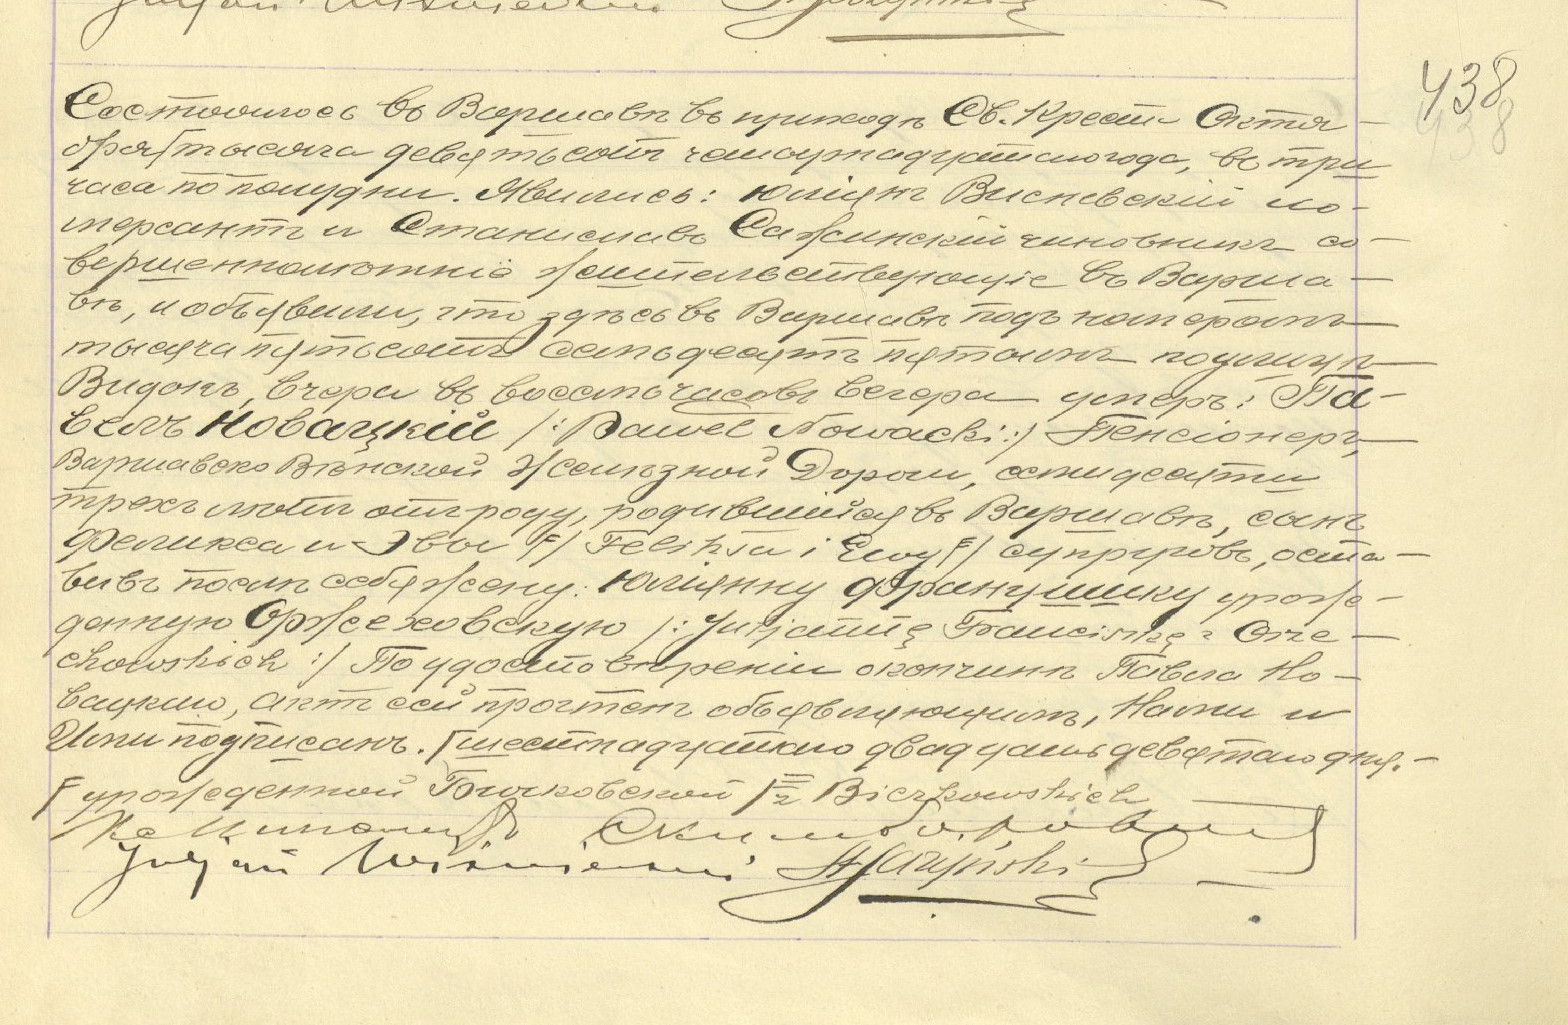 438
Состоялось въ Варшавѣ въ приходѣ Св. Креста Октя-
бря/тысяча девятьсотъ четырнадцатаго года, въ три
часа по полудни. Явились: Юліянъ Висневскій ко-
мерсантъ и Станиславъ Сажинскій чиновникъ со-
вершеннолѣтніе жительствующіе въ Варша-
вѣ, и объявили, что здѣсь въ Варшавѣ подъ номеромъ
тысяча пятьсотъ семьдесятъ пятымъ по улицѣ
Видокъ, вчера въ восемь часовъ вечера умеръ: Па-
велъ Новацкій /: Paweł Nowacki :/ Пенсіонеръ,
Варшавско Вѣнской Желѣзной Дороги, семидесяти
трехъ лѣтъ отъ роду, родившійся въ Варшавѣ, сынъ
Феликса и Эвы /Feliksa i Ewy/ супруговъ, оста-
вивъ послѣ себя жену: Юліянну Францишку урож-
денную Оржеховскую /: Juljannę Franciszkę z Orze-
chowskich :/ По удостовѣреніи о кончинѣ Павла Но-
вацкаго, актъ сей прочтенъ объявляющимъ, Нами и
Ими подписанъ. /шестнадцатаго двадцать девятаго дня.
урожденной Бычковской / z
Juljan Wiśniewski St Sarzyński